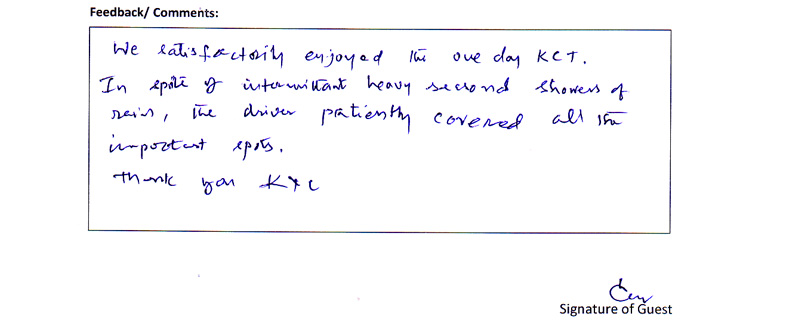 Feedback/ Comments:
We satisfactorily enjoyed the one day KCT.
In spite of intermittant heavy second showers of
rains, the driver patiently covered all the
important spots.
Thank you KTC
Signature of Guest